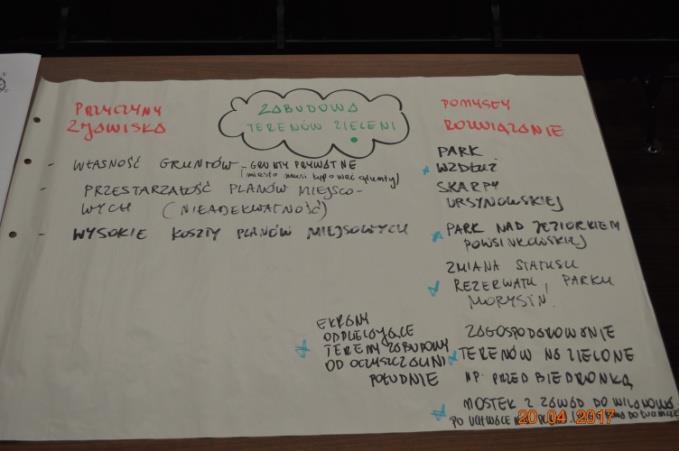 PRZYCZYNY
ZJAWISKA
ZABUDOWA
TERENÓW ZIELENI
- WŁASNOŚĆ GRUNTÓW - GRUNTY PRYWATNE
(miasto musi kupować grunty)
- PRZESTARZAŁOŚĆ PLANÓW MIEJSCO-
WYCH (NIEADEKWATNOŚĆ)
- WYSOKIE KOSZTY PLANÓW MIEJSOWYCH
POMYSŁY
ROZWIĄZANIE
PARK
WZDŁUŻ
SKARPY
URSYNOWSKIEJ
PARK NAD JEZIORKIEM
POWSINKOWSKIEJ
ZMIANA STATUSU
REZERWATU, PARKU
MORYSIN.
EKRANY
ODDZIELAJĄCE
TERENY ZABUDOWY
OD OCZYSZCZALNI
POŁUDNIE
ZAGOSPODAROWANIE
TERENÓW NA ZIELONE
NP. PRZED BIEDRONKĄ
MOSTEK Z ZAWAD DO WILANOWA
PO UCHWALE
20 04 2017